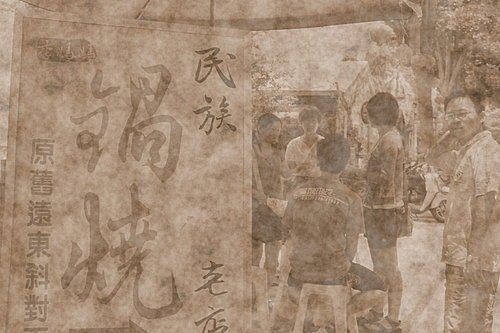 民族老店
鍋燒
原舊遠東斜對